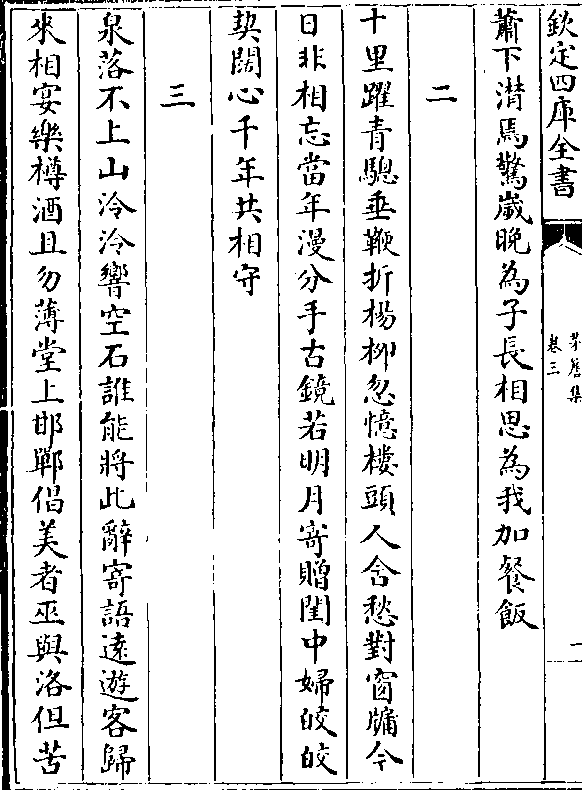 欽定四庫全書
茅簷集
卷三
二
蕭下濳馬驚嵗晚為子長相思為我加餐飯
二
十里躍青驄垂鞭折楊柳忽憶樓頭人含愁對窗牖今
日非相忘當年漫分手古鏡若明月寄贈閨中婦皎皎
契闊心千年共相守
三
泉落不上山泠泠響空石誰能將此辭寄語遠遊客歸
來相宴樂樽酒且勿薄堂上邯鄲倡美者巫與洛但苦